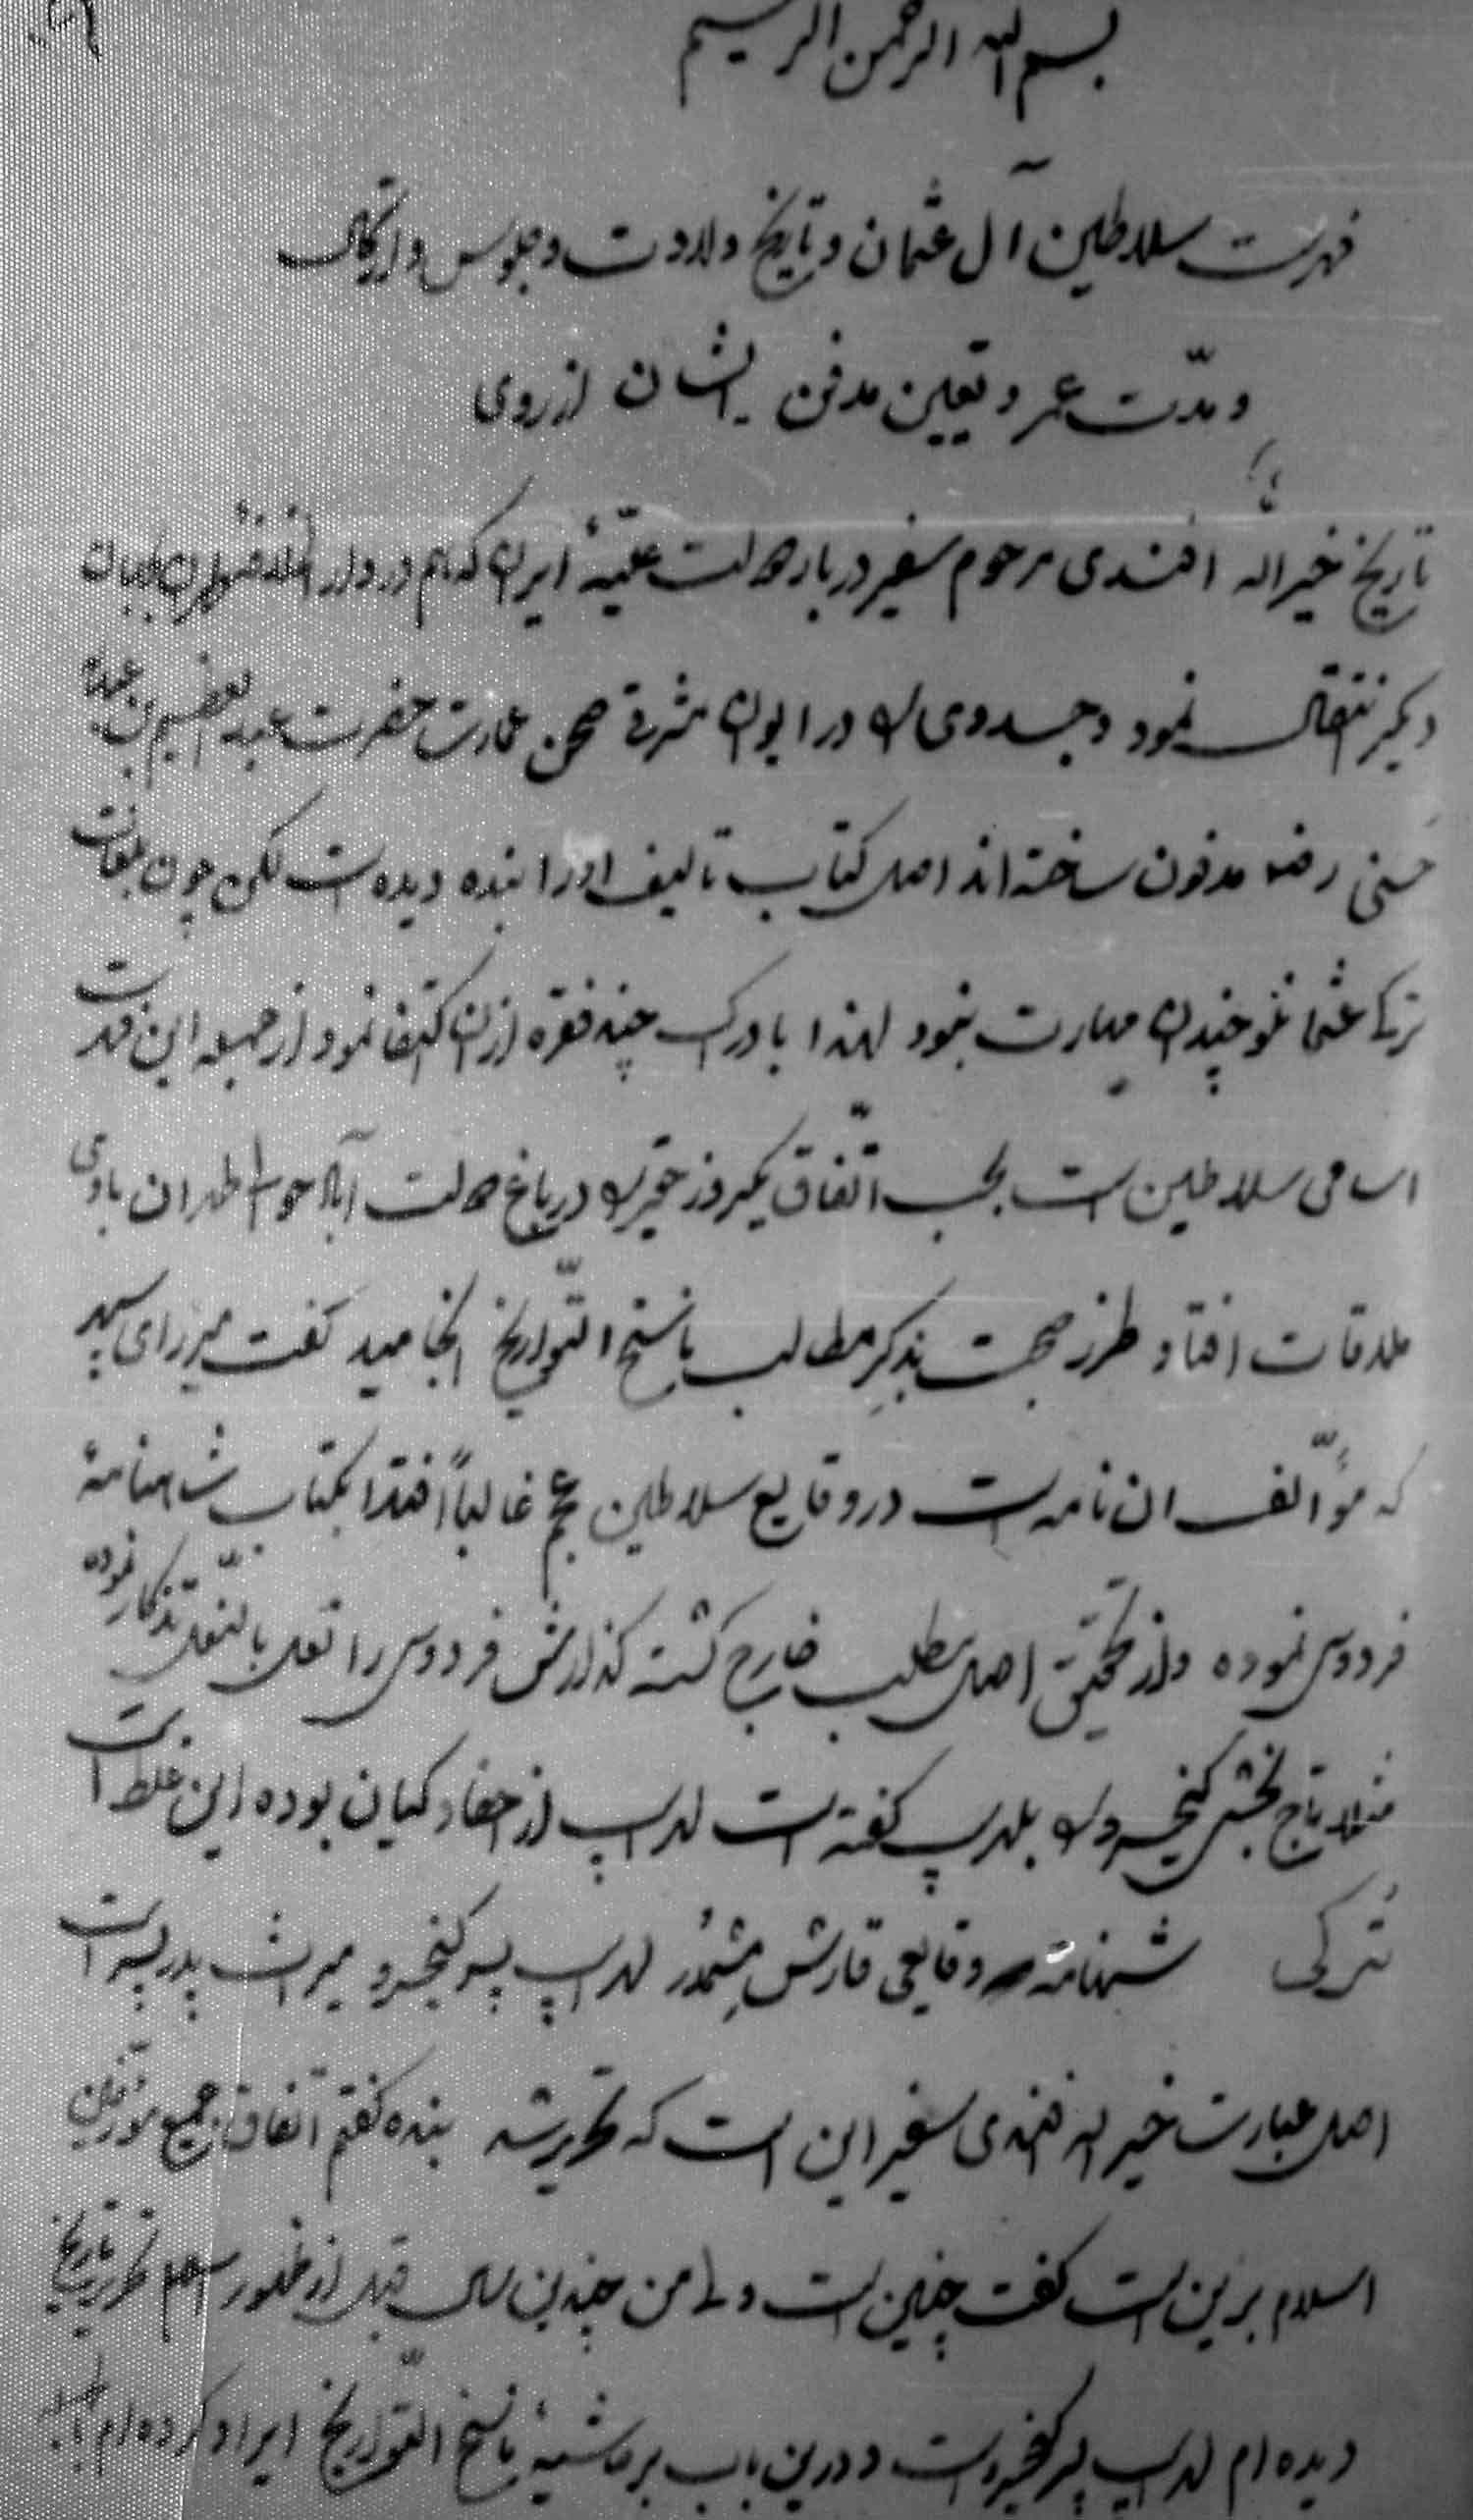 بسم الله الرحمن الرحیم
فهرست سلاطین آل عثمان و تاریخ ولادت و جلوس و ارتحال
و مدّت عمر و تعیین مدفن ایشان از روی
تاریخ خیراله افندی مرحوم سفیر دربار دولت علیّهٔ ایران که هم در دار الخلافه طهران
دیگر انتقال نمود و جسد وی را در ایوان شرقی صحن عمارت حضرت عبد العظیم بن عبدالله
حسنی رضه مدفون ساخته اند اصل کتاب تالیف او را بنده دیده است لکن چون بلغات
ترکی عثمانلو چندان مهارت نبود لهذا بادراک چند فقره ازان اکتفا نمود از جمله این فهرست
اسامی سلاطین است بحسب اتّفاق یکروز حقیر را در باغ دولت طهران باوی
ملاقات افتاد طرز صحبت بذکر مطالب ناسخ التّواریخ انجامید گفت میرزای سپهر
که مؤلّف ان نامه است در وقایع سلاطین عجم غالباً اقتدا بکتاب شاهنامهٔ
فردوسی نموده و از تحقیق اصل مطلب خارج گشته گذارش فردوسی را نعل بالنّعل تذکار نموده
مثلا تاج بخشی کیخسرو را بلهراسپ گفته است لهراسپ از احفاد کیان بوده این غلط است
تُرکی شهنامه وقایعی قارشمشدُر لهراسپ پسر کیخسرو میراث پدر پسر است
اصل عبارت خیراله افندی سفیر این است که تحریر شد بنده گفتم اتفاق جمیع مورّخان
اسلام برین است گفت چنین است ولی من چندین سال قبل از ظهور اسلام تاریخ
دیده ام لهراسپ پسر کیخسرو است و درین باب بر حاشیهٔ ناسخ التّواریخ ایراد کرده ام